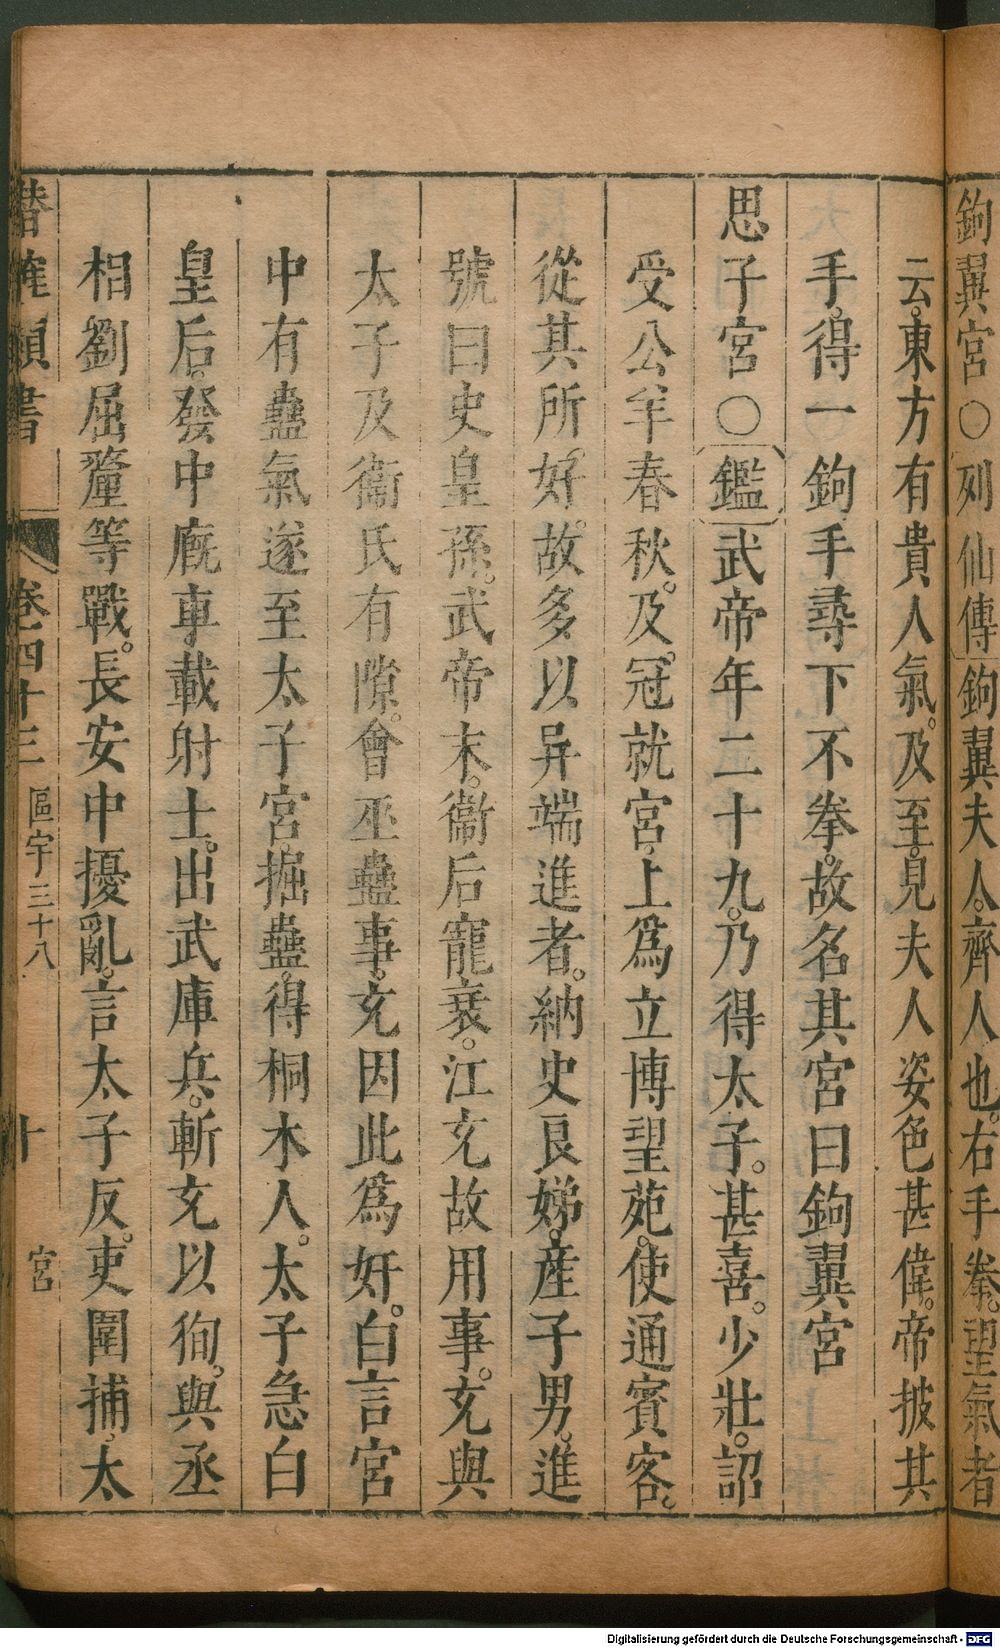 鉤翼宮○列仙傳鉤翼夫人。齊人也。右手拳。望氣者
云。東方有貴人氣。及至。見夫人姿色甚偉。帝披其
手。得一鉤手尋下不拳。故名其宮曰鉤翼宮
思子宮○鑑武帝年二十九。乃得太子。甚喜。少壯。詔
受公羊春秋。及冠就宮。上為立博望苑。使通賓客。
從其所好。故多以异端進者。納史良娣。產子男。進
號曰史皇孫。武帝末。衞后寵衰。江充故用事。充與
太子及衞氏有隙。會巫蠱事。充因此為奸。白言宮
中有蠱氣遂至太子宮。掘蠱。得桐木人。太子急白
皇后。發中廐車載射士。出武庫兵。斬充以徇。與丞
相劉屈氂等戰。長安中擾亂。言太子反。吏圍捕。太
潛確類書 卷四十三 區宇三十八 十 宮
Digitalisierung gefördert durch die Deutsche Forschungsgemeinschaft - DFG